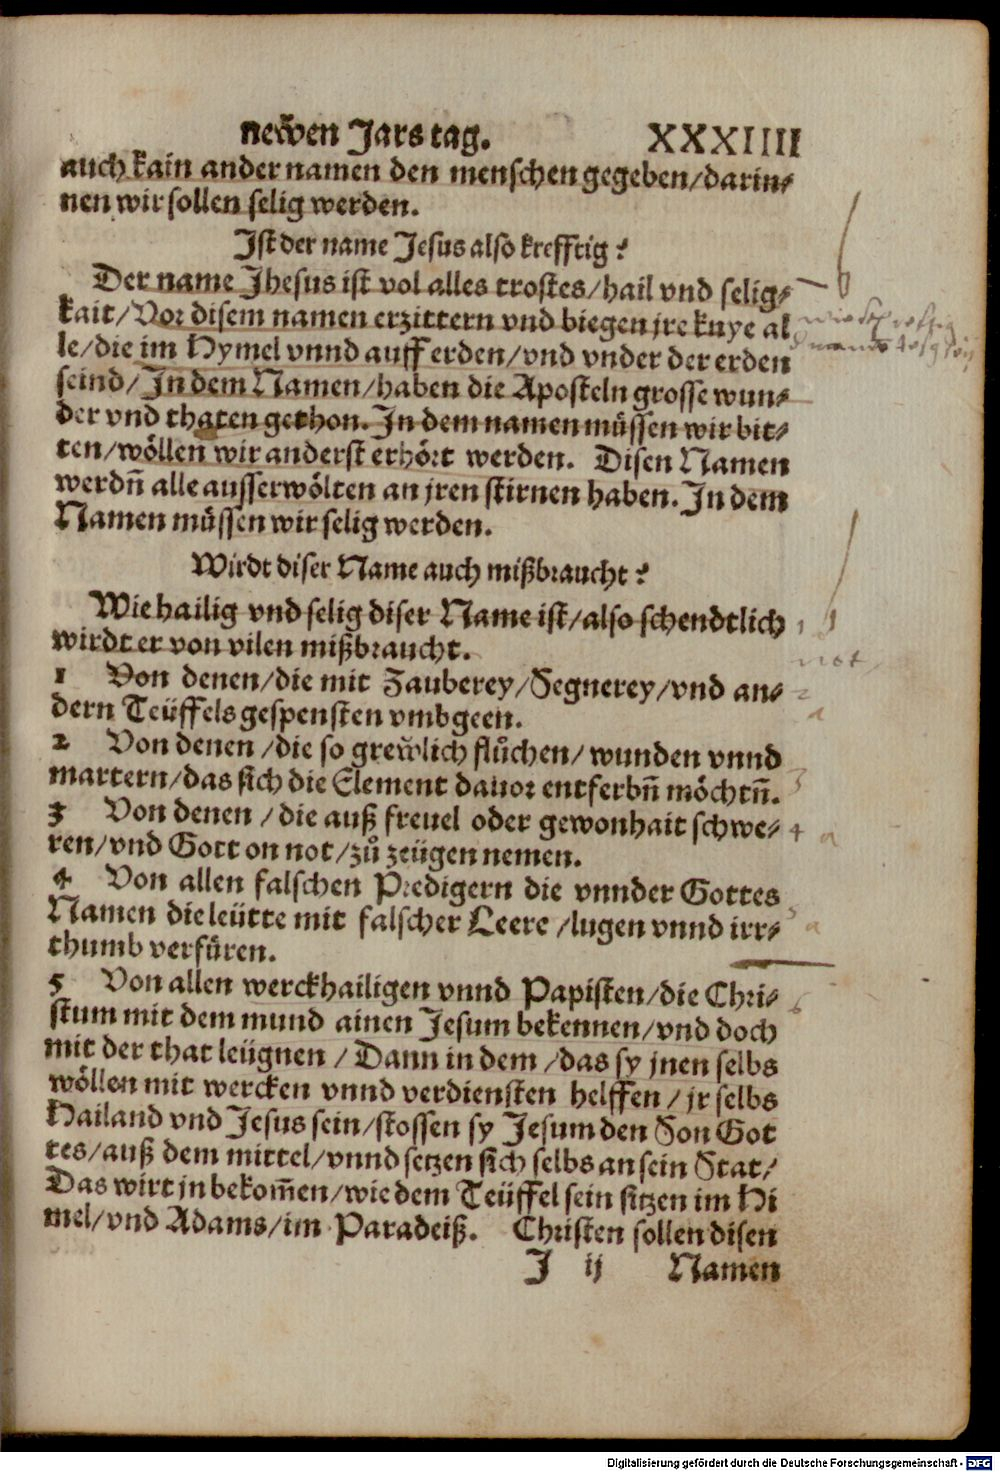 neẅen Jars tag. XXXIIII
auch kain ander namen den menschen gegeben/darin⸗
nen wir sollen selig werden.
Ist der name Jesus also krefftig?
Der name Jhesus ist vol alles trostes/hail vnd selig⸗
kait/Vor disem namen erzittern vnd biegen jre knye al
le/die im Hymel vnnd auff erden/vnd vnder der erden
seind/In dem Namen/haben die Aposteln grosse wun⸗
der vnd thaten gethon. In dem namen müssen wir bit⸗
ten/wöllen wir anderst erhört werden. Disen Namen
werdn̄ alle ausserwölten an jren stirnen haben. In dem
Namen müssen wir selig werden.
Wirdt diser Name auch mißbraucht?
Wie hailig vnd selig diser Name ist/also schendtlich
wirdt er von vilen mißbraucht.
not
1 Von denen/die mit Zauberey/Segnerey/vnd an⸗
dern Teüffels gespensten vmbgeen.
2 Von denen/die so greẅlich flůchen/wunden vnnd
martern/das sich die Element dauor entferbn̄ möchtn̄.
3 Von denen/die auß freuel oder gewonhait schwe⸗
ren/vnd Gott on not/zů zeügen nemen.
4 Von allen falschen Predigern die vnnder Gottes
Namen die leütte mit falscher Leere/lugen vnnd irr⸗
thumb verfüren.
5 Von allen werckhailigen vnnd Papisten/die Chri⸗
stum mit dem mund ainen Jesum bekennen/vnd doch
mit der that leügnen/Dann in dem/das sy jnen selbs
wöllen mit wercken vnnd verdiensten helffen/jr selbs
Hailand vnd Jesus sein/stossen sy Jesum den Son Got
tes/auß dem mittel/vnnd setzen sich selbs an sein Stat/
Das wirt jn bekom̄en/wie dem Teüffel sein sitzen im Hi
mel/vnd Adams/im Paradeiß. Christen sollen disen
J ij Namen
Digitalisierung gefördert durch die Deutsche Forschungsgemeinschaft - DFG